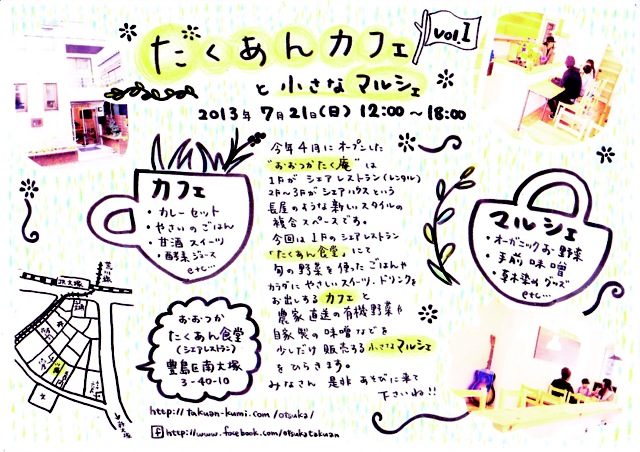 たくあんカフェ
vol.1
と 小さな マルシェ
2013年 7月21日(日) 12:00〜18:00
カフェ
・カレーセット
・やさいのごはん
・甘酒スイーツ
・酵素ジュース
etc...
今年4月にオープンした
"おおつかたく庵"は
1Fが シェアレストラン(レンタル)
2F〜3Fが シェアハウスという
長屋のような新しいスタイルの
複合スペースです。
今回は1Fのシェアレストラン
「たくあん食堂」にて
旬の野菜を使ったごはんや
カラダにやさしいスイーツ、ドリンクを
お出しするカフェと
農家直送の有機野菜や
自家製の味噌などを
少しだけ販売する小さなマルシェ
をひらきます。
みなさん 是非 あそびに来て
下さいね!!
マルシェ
・オーガニックお野菜
・手前味噌
・草木染めグッズ
etc...
JR大塚
おおつか
たくあん食堂
(シェアレストラン)
豊島区南大塚
3-40-10
http://takuan-kumi.com/otsuka/
f http://www.facebook.com/otsukatakuan